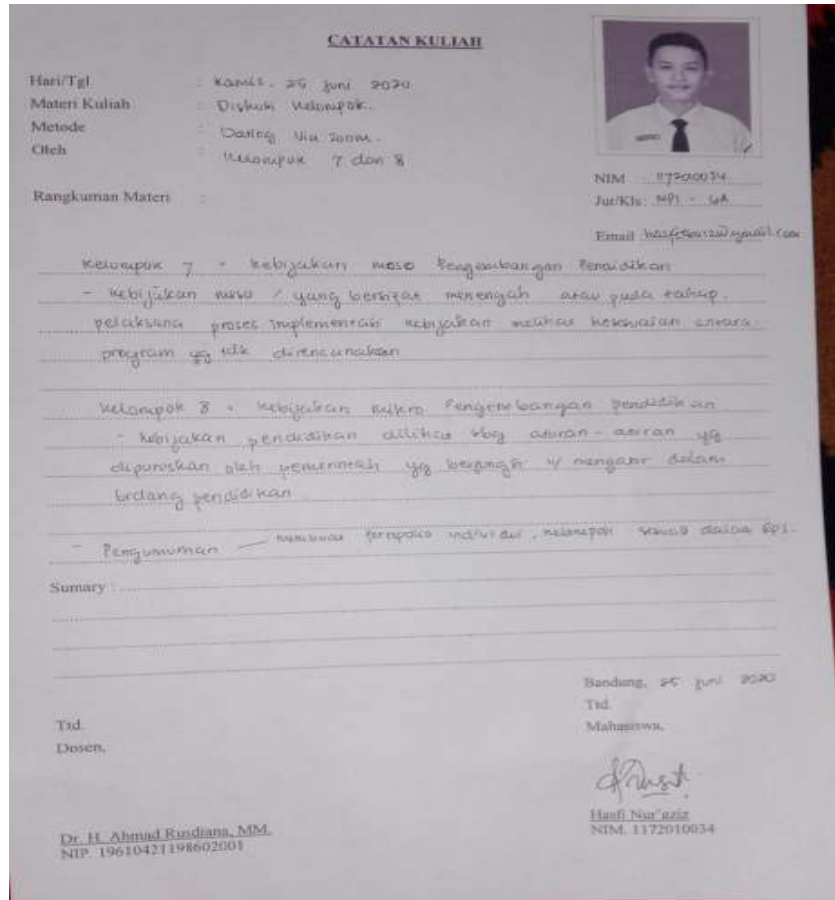 CATATAN KULIAH
Hari/Tgl : Kamis, 25 Juni 2020
Materi Kuliah : Diskusi Kelompok.
Metode : Daring Via Zoom.
Oleh : Kelompok 7 dan 8
NIM : 1172010034
Jur/Kls : MPI - 6A
Rangkuman Materi :
Email
Kelompok 7 - Kebijakan meso Pengembangan Pendidikan
- Kebijakan meso / yang bersifat menengah atau pada tahap
pelaksana proses implementasi kebijakan melihat kesesuaian antara
program yg tdk direncanakan
Kelompok 8 - Kebijakan mikro Pengembangan pendidikan
- Kebijakan pendidikan dilihat sbg aturan-aturan yg
diputuskan oleh pemerintah yg u/ mengatur dalam
bidang pendidikan
- Pengumuman — membuat individu, kelompok dalam RPS.
Sumary :
Bandung, 25 Juni 2020
Ttd.
Mahasiswa,
Ttd.
Dosen,
Hasfi Nur'aziz
NIM. 1172010034
Dr. H. Ahmad Rusdiana, MM.
NIP. 196104211198602001